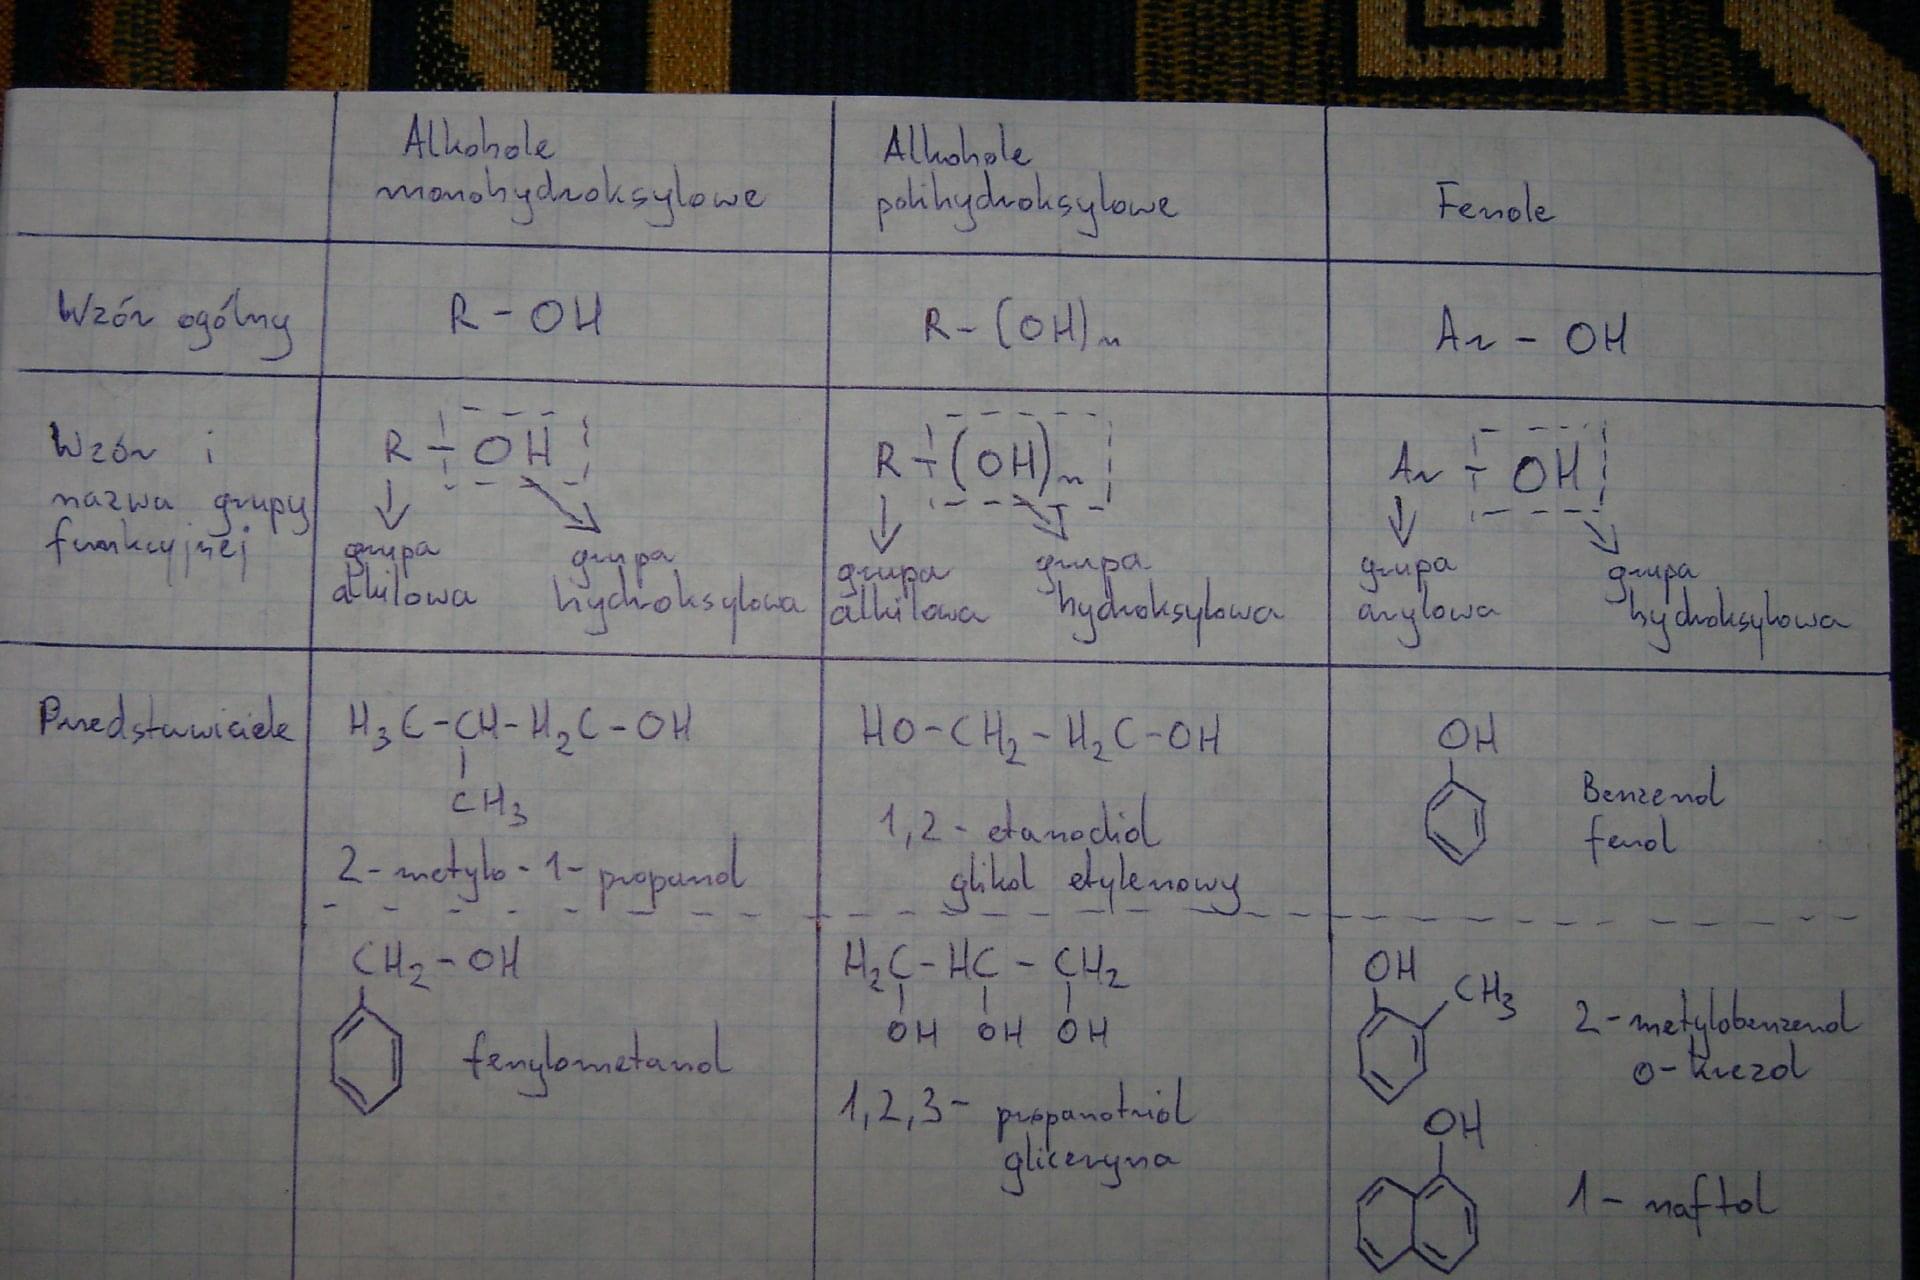 Alkohole
monohydroksylowe
Alkohole
polihydroksylowe
Fenole
Wzór ogólny
R - OH
R - (OH)n
Ar - OH
Wzór i
nazwa grupy
funkcyjnej
R - OH
grupa
alkilowa
grupa
hydroksylowa
R - (OH)n
grupa
alkilowa
grupa
hydroksylowa
Ar - OH
grupa
arylowa
grupa
hydroksylowa
Przedstawiciele
H3C-CH-H2C-OH
CH3
2-metylo-1-propanol
HO-CH2-H2C-OH
1,2-etanodiol
glikol etylenowy
OH
Benzenol
fenol
CH2-OH
fenylometanol
H2C-HC-CH2
OH OH OH
1,2,3- propanotriol
gliceryna
OH
CH3
2-metylobenzenol
o-krezol
OH
1-naftol